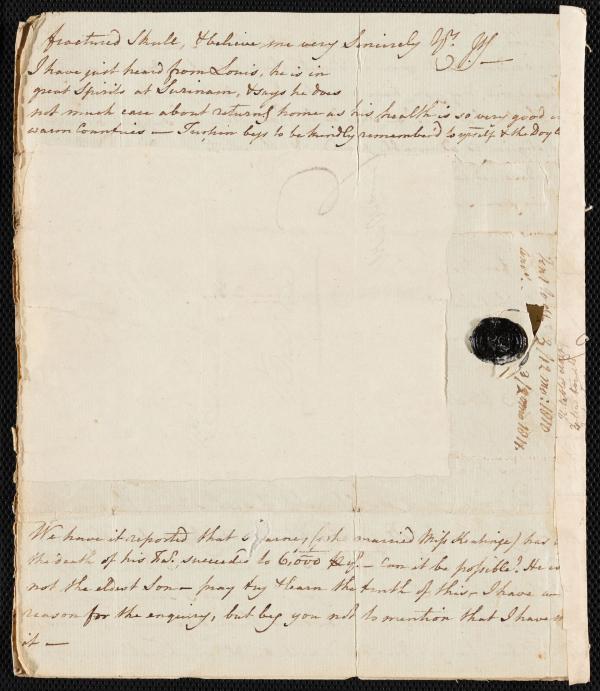 fractured Skull, & believe me very Sincerely Yrs.
I have just heard from Louis, he is in
great Spirits at Surinam, & says he does
not much care about returng. home as his health is so very good
warm Countries — begs to be kindly remember'd to yrself & the
We have it reported that (who married Miss Keatinge) has
the death of his Fa:, succeeded to 6,000 — Can it be possible? He is
not the eldest Son — pray try & learn the truth of this — I have
reason for the enquiry, but beg you not to mention that I have
it —
3/12 mo: 1810